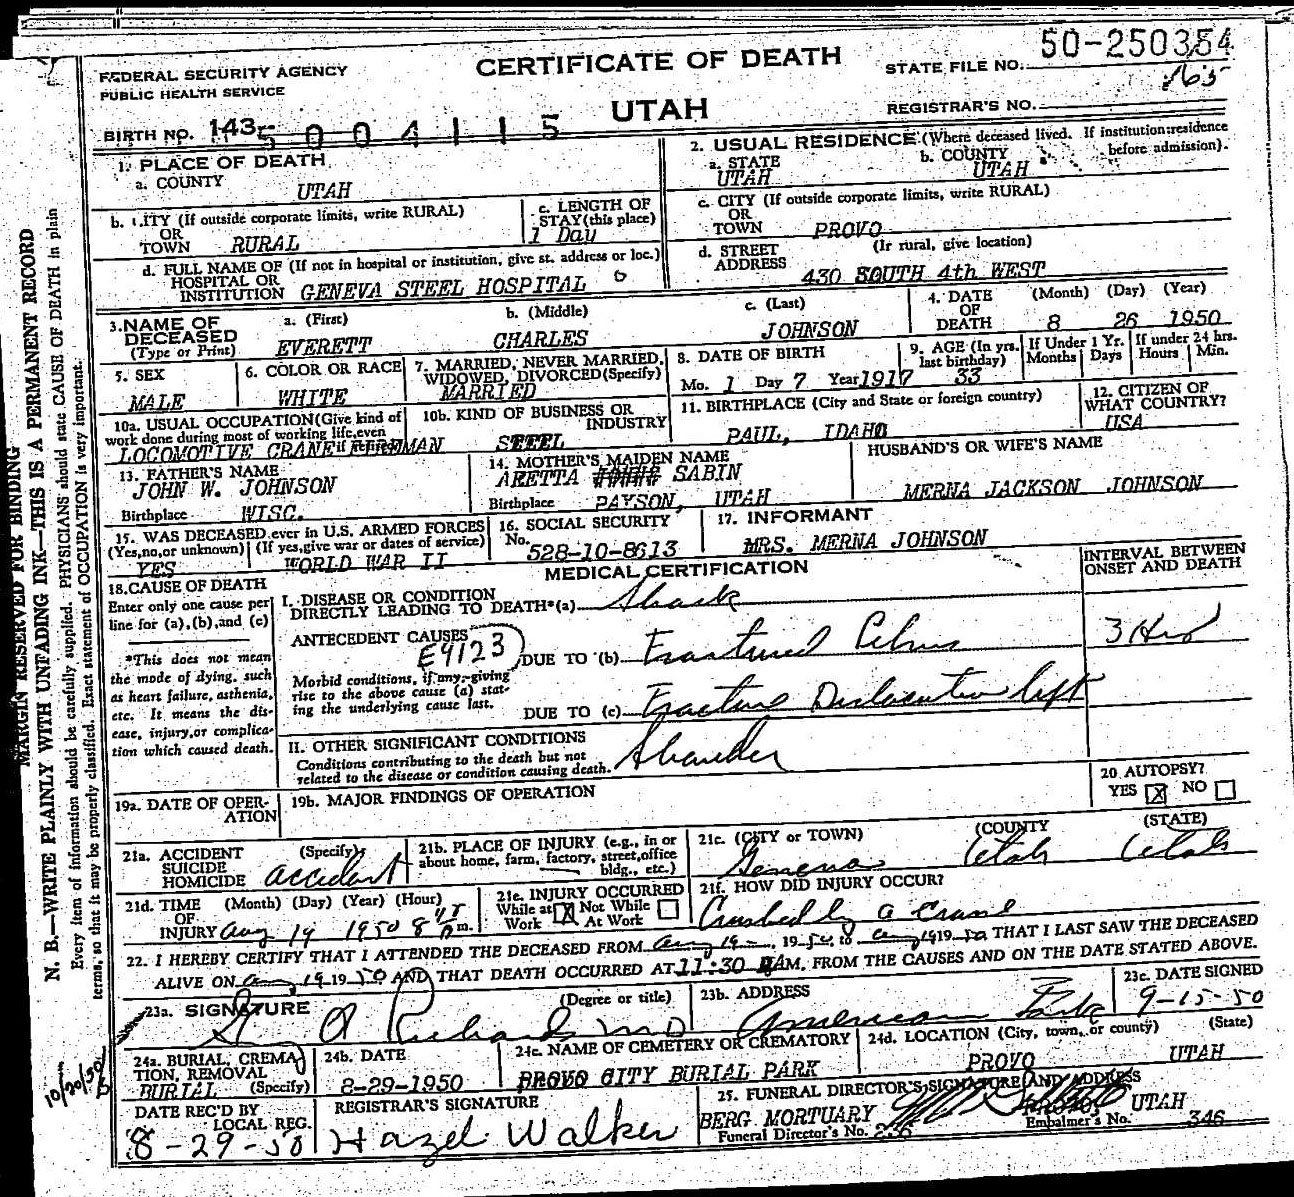 50-250364
FEDERAL SECURITY AGENCY
PUBLIC HEALTH SERVICE
CERTIFICATE OF DEATH
STATE FILE NO.
165
UTAH
REGISTRAR'S NO.
BIRTH NO. 143 5004115
1. PLACE OF DEATH
a. COUNTY
UTAH
2. USUAL RESIDENCE (Where deceased lived. If institution: residence before admission).
a. STATE
UTAH
b. COUNTY
UTAH
b. CITY (If outside corporate limits, write RURAL)
OR
TOWN RURAL
c. LENGTH OF
STAY (this place)
1 Day
c. CITY (If outside corporate limits, write RURAL)
OR
TOWN PROVO
d. FULL NAME OF (If not in hospital or institution, give st. address or loc.)
HOSPITAL OR
INSTITUTION GENEVA STEEL HOSPITAL
d. STREET (If rural, give location)
ADDRESS 430 SOUTH 4th WEST
3. NAME OF
DECEASED
(Type or Print)
a. (First)
EVERETT
b. (Middle)
CHARLES
c. (Last)
JOHNSON
4. DATE
OF
DEATH
(Month) (Day) (Year)
8 26 1950
5. SEX
MALE
6. COLOR OR RACE
WHITE
7. MARRIED, NEVER MARRIED,
WIDOWED, DIVORCED (Specify)
MARRIED
8. DATE OF BIRTH
Mo. 1 Day 7 Year 1917
9. AGE (In yrs.
last birthday)
33
If Under 1 Yr.
Months Days
If under 24 hrs.
Hours Min.
10a. USUAL OCCUPATION (Give kind of
work done during most of working life, even
if retired)
LOCOMOTIVE CRANE FIREMAN
10b. KIND OF BUSINESS OR
INDUSTRY
STEEL
11. BIRTHPLACE (City and State or foreign country)
PAUL, IDAHO
12. CITIZEN OF
WHAT COUNTRY?
USA
13. FATHER'S NAME
JOHN W. JOHNSON
Birthplace WISC.
14. MOTHER'S MAIDEN NAME
ARETTA SABIN
Birthplace PAYSON, UTAH
HUSBAND'S OR WIFE'S NAME
MERNA JACKSON JOHNSON
15. WAS DECEASED ever in U.S. ARMED FORCES
(Yes, no, or unknown) (If yes, give war or dates of service)
YES WORLD WAR II
16. SOCIAL SECURITY
No.
528-10-8613
17. INFORMANT
MRS. MERNA JOHNSON
18. CAUSE OF DEATH
Enter only one cause per
line for (a), (b), and (c)
*This does not mean
the mode of dying, such
as heart failure, asthenia,
etc. It means the dis-
ease, injury, or complica-
tion which caused death.
MEDICAL CERTIFICATION
INTERVAL BETWEEN
ONSET AND DEATH
I. DISEASE OR CONDITION
DIRECTLY LEADING TO DEATH* (a) Shock
ANTECEDENT CAUSES
E9123
DUE TO (b) Fractured Pelvis
3 Hrs
Morbid conditions, if any, giving
rise to the above cause (a) stat-
ing the underlying cause last.
DUE TO (c) Fracture Dislocation left
II. OTHER SIGNIFICANT CONDITIONS
Conditions contributing to the death but not
related to the disease or condition causing death.
Shoulder
19a. DATE OF OPER-
ATION
19b. MAJOR FINDINGS OF OPERATION
20 AUTOPSY?
YES X NO
21a. ACCIDENT
SUICIDE
HOMICIDE
(Specify)
accident
21b. PLACE OF INJURY (e.g., in or
about home, farm, factory, street, office
bldg., etc.)
21c. (CITY or TOWN) (COUNTY) (STATE)
Geneva Utah Utah
21d. TIME
OF
INJURY
(Month) (Day) (Year) (Hour)
Aug 19 1950 8 45 m.
21e. INJURY OCCURRED
While at X Not While
Work At Work
21f. HOW DID INJURY OCCUR?
Crushed by a Crane
22. I HEREBY CERTIFY THAT I ATTENDED THE DECEASED FROM Aug 19, 1950, to Aug 19 1950 THAT I LAST SAW THE DECEASED
ALIVE ON Aug 19 1950 AND THAT DEATH OCCURRED AT 11:30 AM. FROM THE CAUSES AND ON THE DATE STATED ABOVE.
23a. SIGNATURE (Degree or title)
Richards MD
23b. ADDRESS
American Fork
23c. DATE SIGNED
9-15-50
24a. BURIAL, CREMA
TION, REMOVAL
BURIAL (Specify)
24b. DATE
8-29-1950
24c. NAME OF CEMETERY OR CREMATORY
PROVO CITY BURIAL PARK
24d. LOCATION (City, town, or county) (State)
PROVO UTAH
DATE REC'D BY
LOCAL REG.
8-29-50
REGISTRAR'S SIGNATURE
Hazel Walker
25. FUNERAL DIRECTOR'S SIGNATURE AND ADDRESS
BERG MORTUARY UTAH
Funeral Director's No. 236
Embalmer's No. 346
MARGIN RESERVED FOR BINDING
N. B.—WRITE PLAINLY WITH UNFADING INK—THIS IS A PERMANENT RECORD
Every item of information should be carefully supplied. PHYSICIANS should state CAUSE OF DEATH in plain
terms, so that it may be properly classified. Exact statement of OCCUPATION is very important.
10/20/50